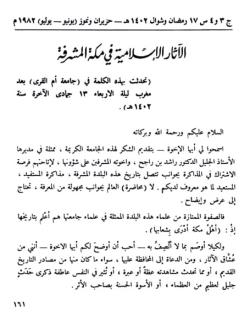 ج ٣ و ٤ س ١٧ رمضان وشوال ١٤٠٢ هـ — حزيران وتموز (يونيو — يوليو) ١٩٨٢ م
الآثار الإسلامية في مكة المشرفة
(تحدثت بهذه الكلمة في (جامعة أم القرى) بعد
مغرب ليلة الأربعاء ١٣ جمادى الآخرة سنة
١٤٠٢ هـ)
السلام عليكم ورحمة الله وبركاته
اسمحوا لي أيها الإخوة — بتقديم الشكر لهذه الجامعة الكريمة، ممثلة في مديرها
الأستاذ الجليل الدكتور راشد بن راجح، وإخوته المشرفين على شؤونها، لإتاحتهم فرصة
الاشتراك في المذاكرة بجوانب تتصل بتاريخ هذه البلدة المشرفة، مذاكرة المستفيد،
المستعيد لما هو معروف لديكم. لا (محاضرة) العالم بجوانب مجهولة من المعرفة، تحتاج
إلى عرض وإيضاح.
فالصفوة المختارة من علماء هذه البلدة الممثلة في علماء جامعتها هم أعلم بتاريخها
إذ (أهل مكة أدرى بشعابها).
ولكيلا أوصم بما لا أتصف به — أحب أن أوضح لكم أيها الإخوة — أنني من
عشاق الآثار، ومن الدعاة إلى المحافظة عليها، سواء ما كان منها من مصادر التاريخ
القديم، أو مما تحدث مشاهدته عظة أو عبرة، أو تثير في النفس عاطفة ذكرى حدث
جليل لعظيم من العظماء، أو الأسوة الحسنة بصاحب الأثر.
١٦١